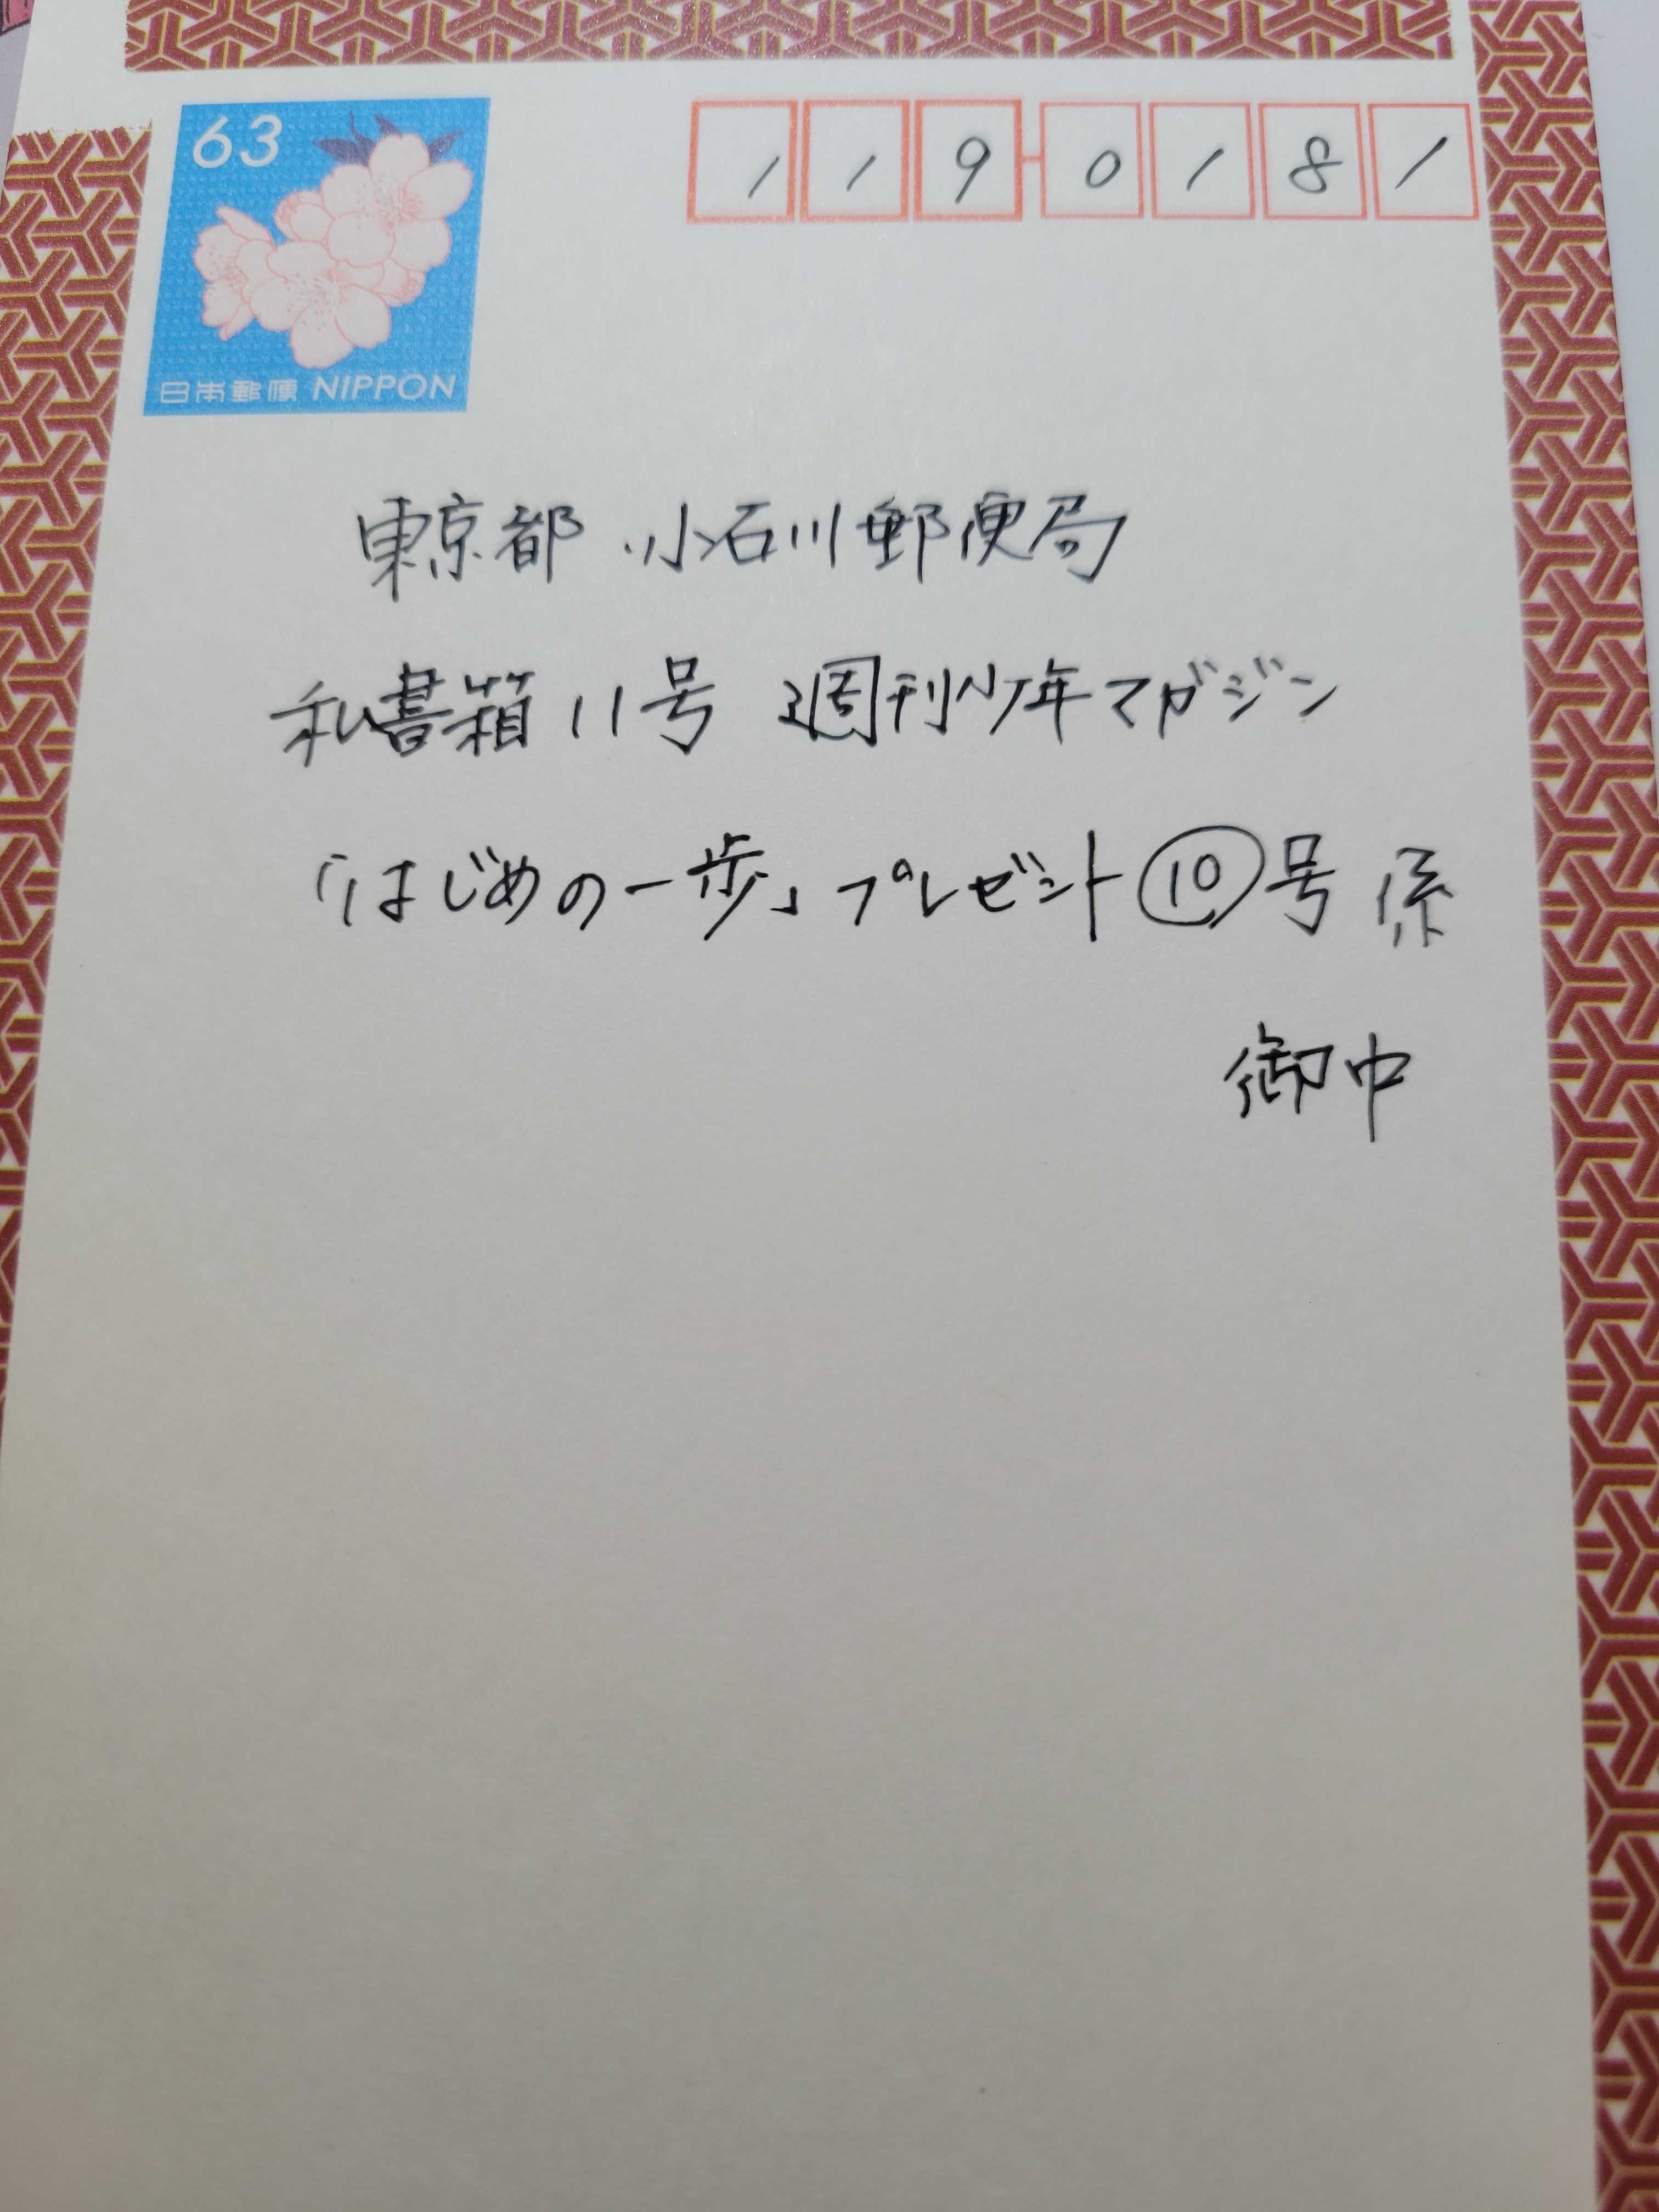 63
日本郵便 NIPPON
119-0181
東京都 小石川郵便局
私書箱11号 週刊少年マガジン
「はじめの一歩」プレゼント⑩号 係
御中